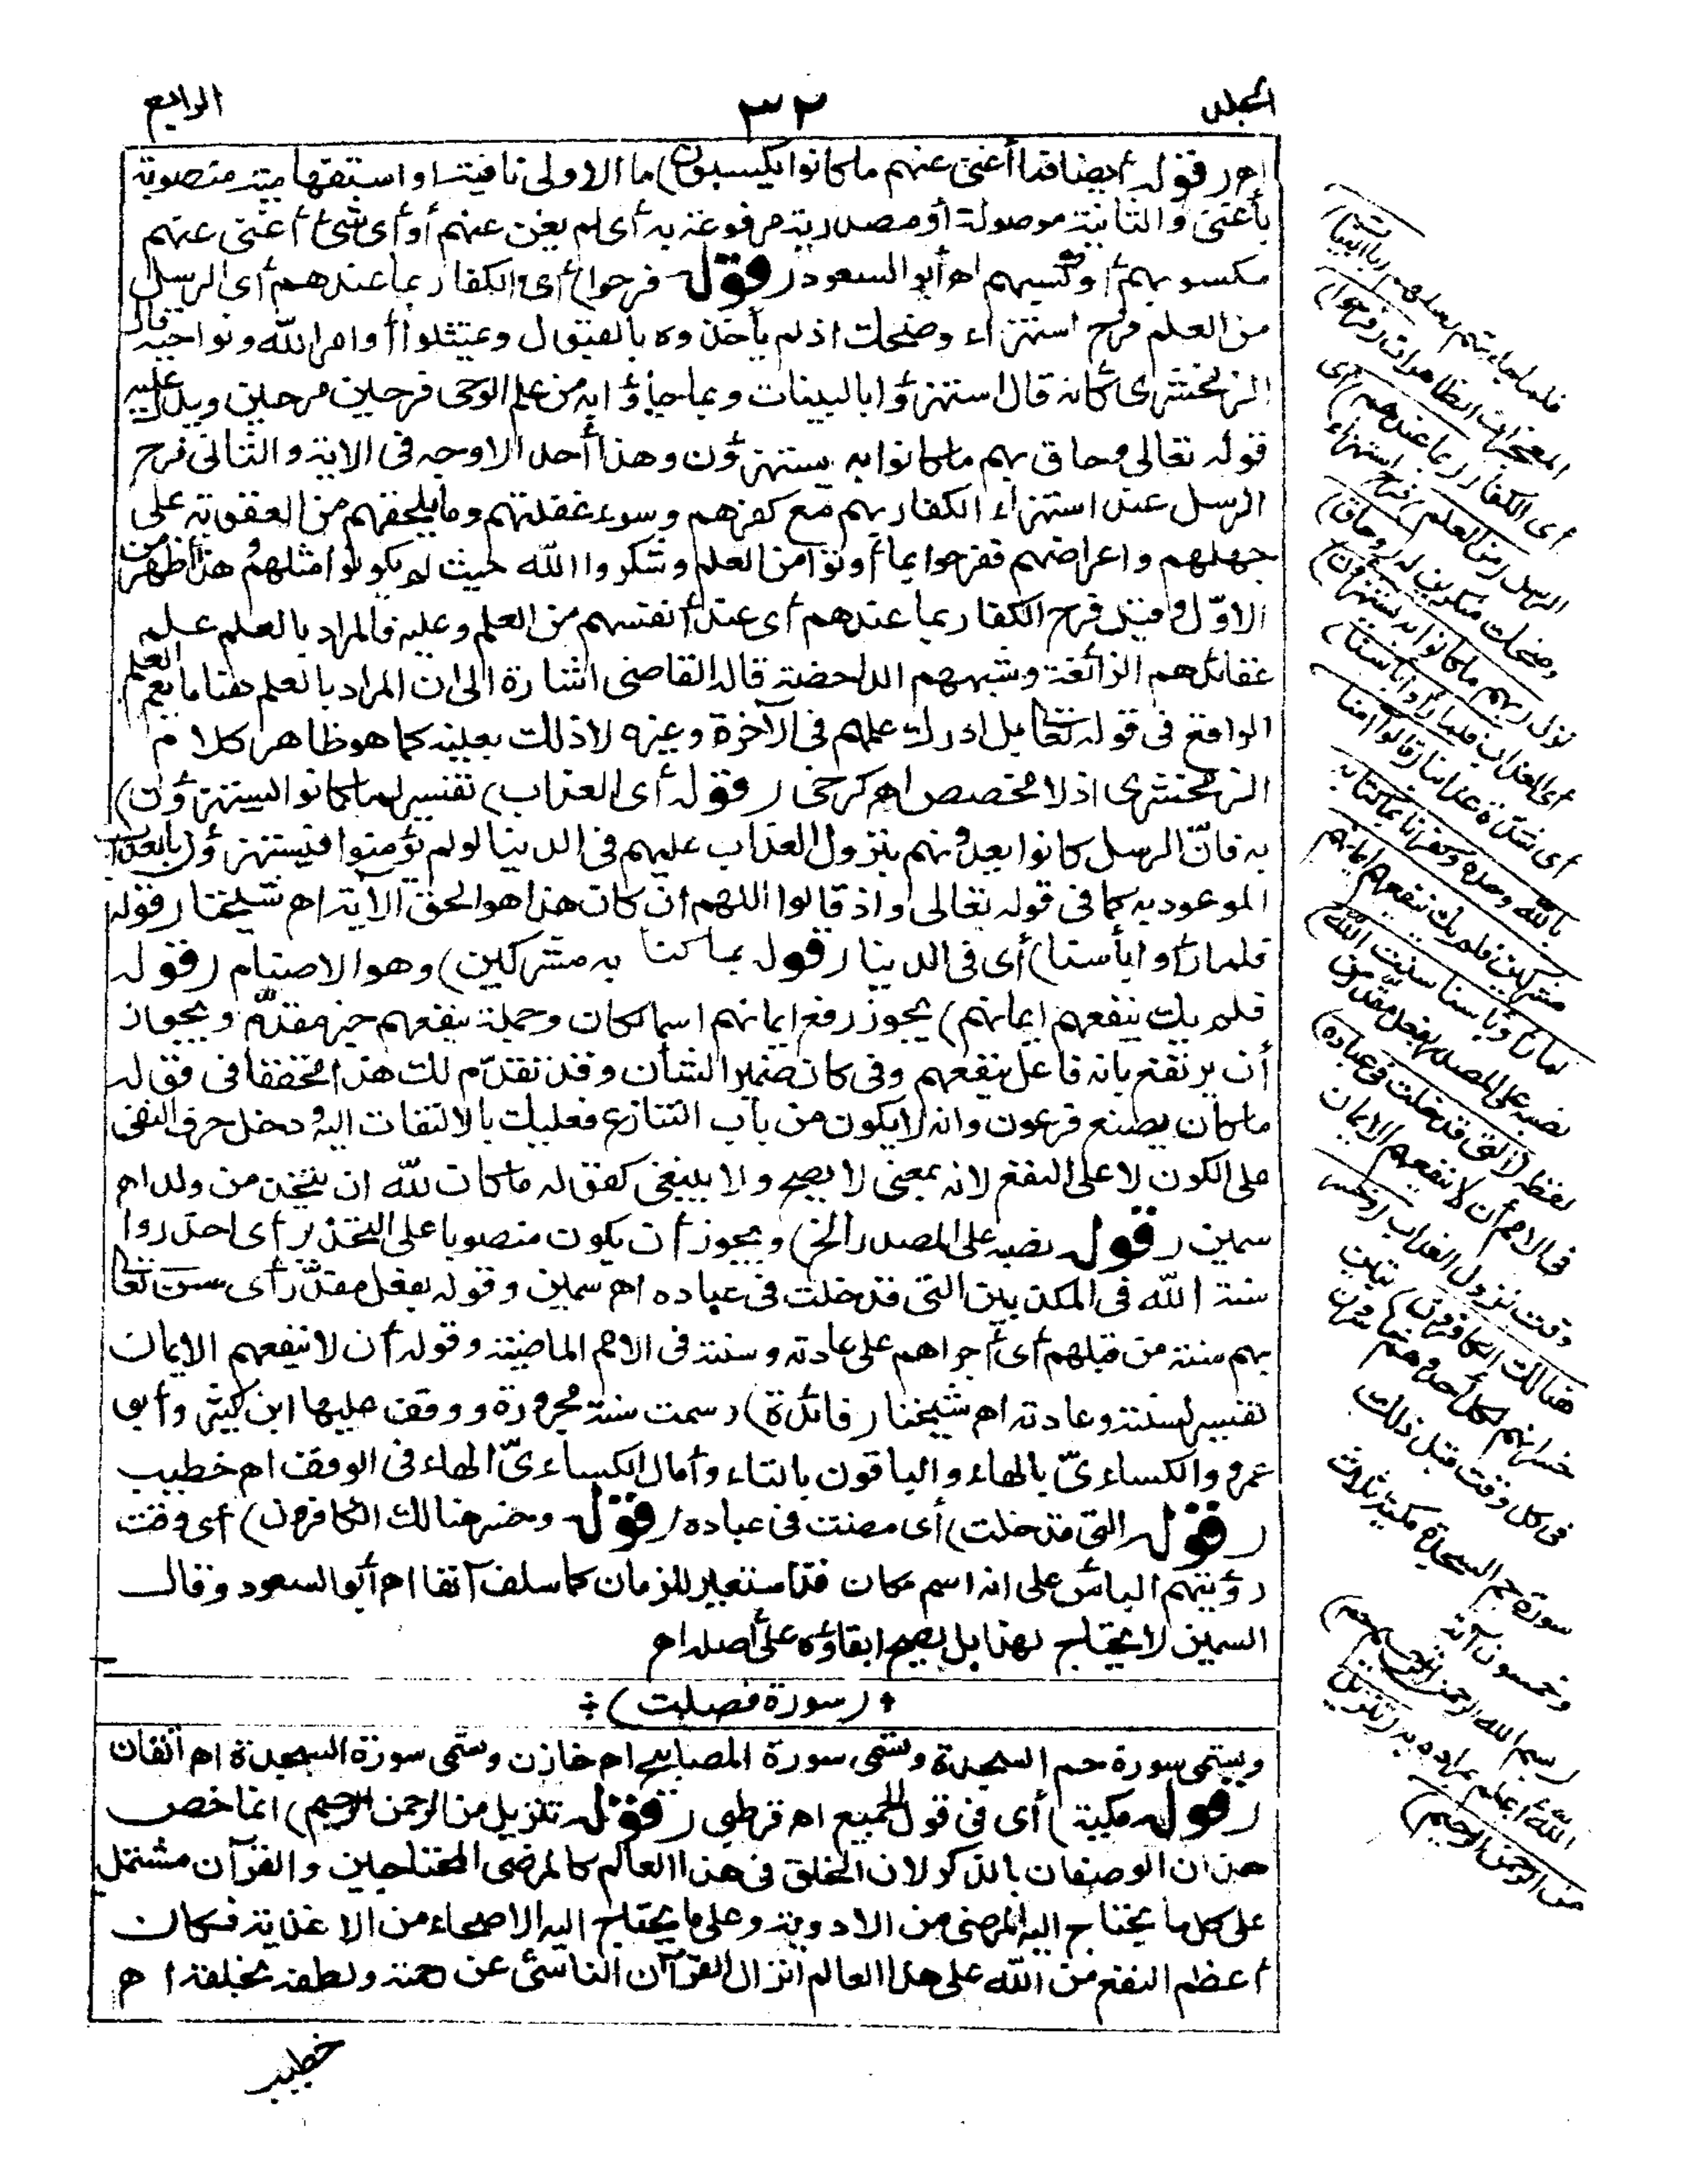 المجلد
٣٢
الرابع
اهـ (قوله أيضا فما أغنى عنهم ما كانوا يكسبون) ما الاولى نافية أو استفهامية منصوبة
بأغنى والثانية موصولة أو مصدرية مرفوعة به أى لم يغن عنهم أو أى شئ أغنى عنهم
مكسوبهم أو كسبهم اه أبو السعود (قوله فرحوا) أى الكفار بما عندهم أى الرسل
من العلم فرح استهزاء وضحك اذ لم يأخذوه بالقبول ويمتثلوا أوامر الله ونواهيه قال
الزمخشرى كأنه قال استهزؤا بالبينات وبما جاؤا به من علم الوحى فرحين مرحين ويدل عليه
قوله تعالى وحاق بهم ما كانوا به يستهزؤن وهذا أحد الاوجه فى الاية والثانى فرح
الرسل عند استهزاء الكفار بهم مع كفرهم وسوء غفلتهم وما يلحقهم من العقوبة على
جهلهم واعراضهم ففرحوا بما أوتوا من العلم وشكروا الله حيث لم يكونوا مثلهم وهذا أظهر من
الاوّل وقيل فرح الكفار بما عندهم أى عند أنفسهم من العلم وعليه فالمراد بالعلم علم
عقائدهم الزائغة وشبههم الداحضة قاله القاضى اشارة الى ان المراد بالعلم هنا ما يعم العلم
الواقع فى قوله تعالى بل ادرك علمهم فى الآخرة وغيره لا ذلك بعينه كما هو ظاهر كلام
الزمخشرى اذ لا مخصص اه كرخى (قوله أى العذاب) تفسير لما كانوا يستهزؤن
به فانّ الرسل كانوا يعدونهم بنزول العذاب عليهم فى الدنيا لو لم يؤمنوا فيستهزؤن بالعذاب
الموعود به كما فى قوله تعالى واذ قالوا اللهم ان كان هذا هو الحق الآية اه شيخنا (قوله
فلما رأوا بأسنا) أى فى الدنيا (قوله بما كنا به مشركين) وهو الاصنام (قوله
فلم يك ينفعهم ايمانهم) يجوز رفع ايمانهم اسما لكان وجملة ينفعهم خبر مقدّم ويجوز
أن يرتفع بانه فاعل ينفعهم وفى كان ضمير الشأن وقد تقدّم لك هذا محققا فى قوله
ما كان يصنع فرعون وانه لا يكون من باب التنازع فعليك بالالتفات اليه ودخل حرف النفى
على الكون لا على النفع لانه بمعنى لا يصح ولا ينبغى كقوله ما كان لله ان يتخذ من ولد اه
سمين (قوله نصبه على المصدر الخ) ويجوز أن يكون منصوبا على التحذير أى احذروا
سنة الله فى المكذبين التى قد خلت فى عباده اه سمين وقوله بفعل مقدّر أى سن تعالى
بهم سنة من قبلهم أى أجراهم على عادته وسنته فى الامم الماضية وقوله أن لا ينفعهم الايمان
تفسير لسنته وعادته اه شيخنا (فائدة) رسمت سنة مجرورة ووقف عليها ابن كثير وأبو
عمرو والكسائىّ بالهاء والباقون بالتاء وأمال الكسائىّ الهاء فى الوقف اه خطيب
(قوله التى قد خلت) أى مضت فى عباده (قوله وخسر هنالك الكافرون) أى وقت
رؤيتهم البأس على انه اسم مكان قد استعير للزمان كما سلف آنفا اه أبو السعود وقال
السمين لا يحتاج لهذا بل يصح ابقاؤه على أصله اه
(سورة فصلت)
وتسمى سورة حم السجدة وتسمى سورة المصابيح اه خازن وتسمى سورة السجدة اه اتقان
(قوله مكية) أى فى قول الجميع اه قرطبى (قوله تنزيل من الرحمن الرحيم) انما خص
هذان الوصفان بالذكر لان الخلق فى هذا العالم كالمرضى المحتاجين والقرآن مشتمل
على كل ما يحتاج اليه المرضى من الادوية وعلى ما يحتاج اليه الاصحاء من الاغذية فكان
أعظم النفع من الله على هذا العالم انزال القرآن الناشئ عن رحمته ولطفه بخلقه اه
خطيب
فلما جاءتهم رسلهم بالبينات)
المعجزات الظاهرات (فرحوا)
أى الكفار (بما عندهم) أى
الرسل (من العلم) فرح استهزاء
وضحك منكرين له (وحاق)
نزل (بهم ما كانوا به يستهزؤن)
أى العذاب (فلما رأوا بأسنا)
أى شدّة عذابنا (قالوا آمنا
بالله وحده وكفرنا بما كنا به
مشركين فلم يك ينفعهم ايمانهم
لما رأوا بأسنا سنت الله)
نصبه على المصدر بفعل مقدّر من
لفظه (التى قد خلت فى عباده)
فى الامم أن لا ينفعهم الايمان
وقت نزول العذاب (وخسر
هنالك الكافرون) تبين
خسرانهم لكل أحد وهم خاسرون
فى كل وقت قبل ذلك
سورة حم السجدة مكية ثلاث
وخمسون آية
(بسم الله الرحمن الرحيم حم)
الله أعلم بمراده به (تنزيل
من الرحمن الرحيم)